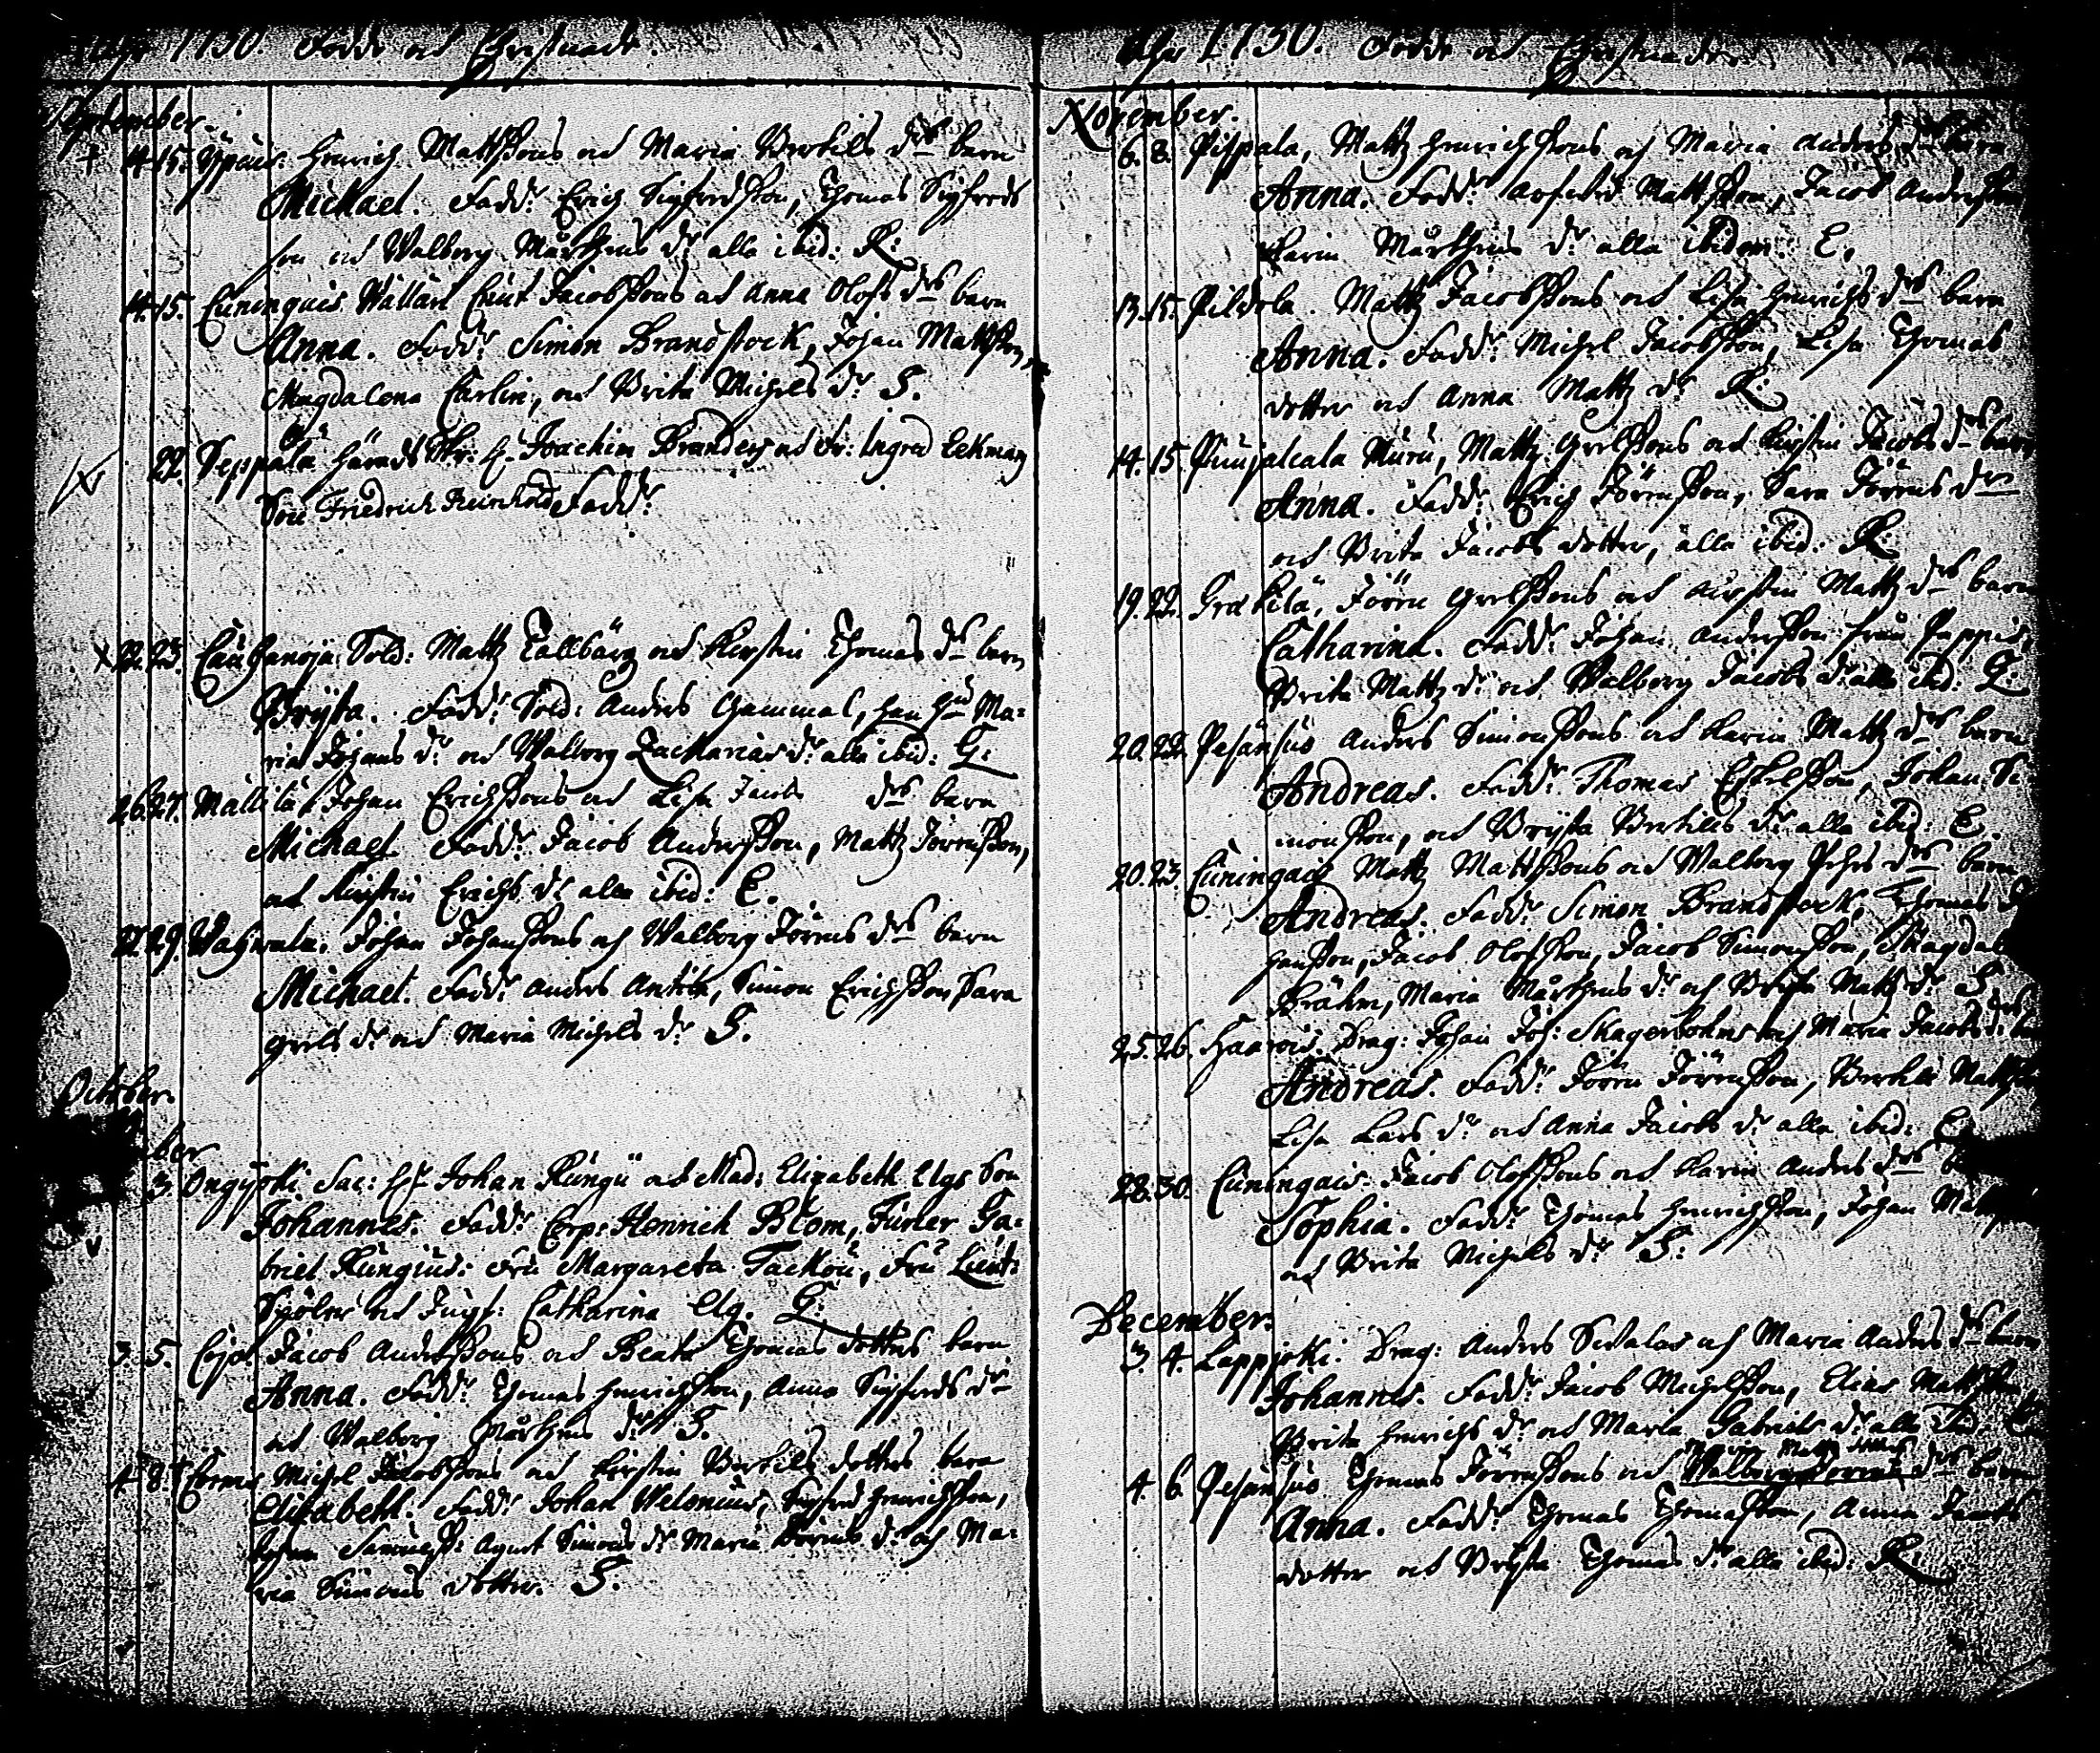 1730. Födde och Christnade.
September.
14. 15. Yppäis. Henrich Mattssons och Maria Bertils drs barn
Michael. Fadd: Erich Sigfredsson, Thomas Sigfreds
son och Walborg Mårthens dr alla ibid: R:
14. 15. Cuninguis Wällari Cnut Jacobssons och Anna Olofs drs barn
Anna. Fadd: Simon Brandstock, Johan Mattsson,
Magdalena Carlin, och Brita Michels dr S.
22. Seppälä Härads Skr: H. Joachim Branders och Fr: Ingred Eekman
Son Friedrich Reinhold Fadd:
22. 23. Cauhanoja. Sold: Mattz Tallbärg och Kirstin Thomas dr barn
Brijta. Fadd: Sold: Anders Gammal, Hans Hu Ma=
ria Johans dr och Walborg Zacharias dr alla ibid: G:
26. 27. Mällilä Johan Erichssons och Lisa Jacobs drs barn
Michael. Fadd: Jacob Andersson, Mattz Jörensson,
och Kirstin Erichs dr alla ibid: E.
27. 29. Johan Johanssons och Walborg Jörens drs barn
Michael. Fadd: Anders Antila, Simon Erichsson, Sara
Grels dr och Maria Michels dr S.
October.
ber
3. Ongijoki Sac: Hr Johan Rungii och Mad: Elizabeth Elgs Son
Johannes. Fadd: Corp: Henrich Blom, Furier Ga=
briel Rungius: Fru Margareta Tackou, Fru Lieut:
och Jungf: Catharina Elg. G.
3. 5. Corp: Jacob Anderssons och Beata Thomas dotters barn
Anna. Fadd: Thomas Henrichsson, Anna Sigfreds dr
och Walborg Mårthens dr S.
4. 8. Corms Michel Jacobssons och Kirstin Bertils dotters barn
Elizabeth. Fadd: Johan Welonius, Sigfred Henrichsson,
Agnet Simons dr Maria Jörens dr och Ma=
ria Simons dotter. S.
1730. Födde och Christnade.
November.
6. 8. Pispala, Mattz Henrichssons och Maria Anders drs barn
Anna. Fadd: Mattsson, Jacob Andersson
Karin Mårthens dr alla ibidem: E.
13. 15. Pildola. Mattz Jacobssons och Lisa Henrichs drs barn
Anna. Fadd: Michel Jacobsson, Lisa Thomas
dotter och Anna Mattz dr R:
14. 15. Puujalcala Nuru, Mattz Grelssons och Kirstin Jacobs drs barn
Anna. Fadd: Erich Jörensson, Sara Jörens dr
och Brita Jacobs dotter, alla ibid: R.
19. 22. Jören Grelssons och Kirstin Mattz drs barn
Catharina. Fadd: Johan Andersson från Pappis,
Brita Mattz dr och Walborg Jacobs dr alla ibid: G.
20. 22. Pesänsuo Anders Simonssons och Karin Mattz drs barn
Andreas. Fadd: Thomas Eskelsson, Johan Si
monsson, och Brijta Bertils dr alla ibid: E.
20. 23. Cuningais Mattz Mattssons och Walborg Pehrs drs barn
Andreas. Fadd: Simon Brandstock, Thomas
Hansson, Jacob Olofsson, Jacob Simonsson, Magdal
Brähm, Maria Mårthens dr och Brita Mattz dr S
25. 26. Haarois. Drag: Johan Joh: Skagerbohms och Maria Jacobs drs
Andreas. Fadd: Jören Jörensson, Bertill Mattsson
Lisa Lars dr och Anna Jacobs dr alla ibid: E.
28. 30. Cuningais. Jacob Olofssons och Karin Anders drs
Sophia. Fadd: Thomas Henrichsson, Johan
och Brita Michels dr S:
December.
3. 4. Lappjoki. Drag: Anders och Maria Anders drs barn
Johannes. Fadd: Jacob Michelsson, Elias Mattsson
Brita Henrichs dr och Maria Gabriels dr alla ibid
4. 6. Pesänsuo Thomas Jörenssons och Walborg drs barn
Anna. Fadd: Thomas Thomasson, Anna Jacobs
dotter och Brijta Thomas dr alla ibid: R.